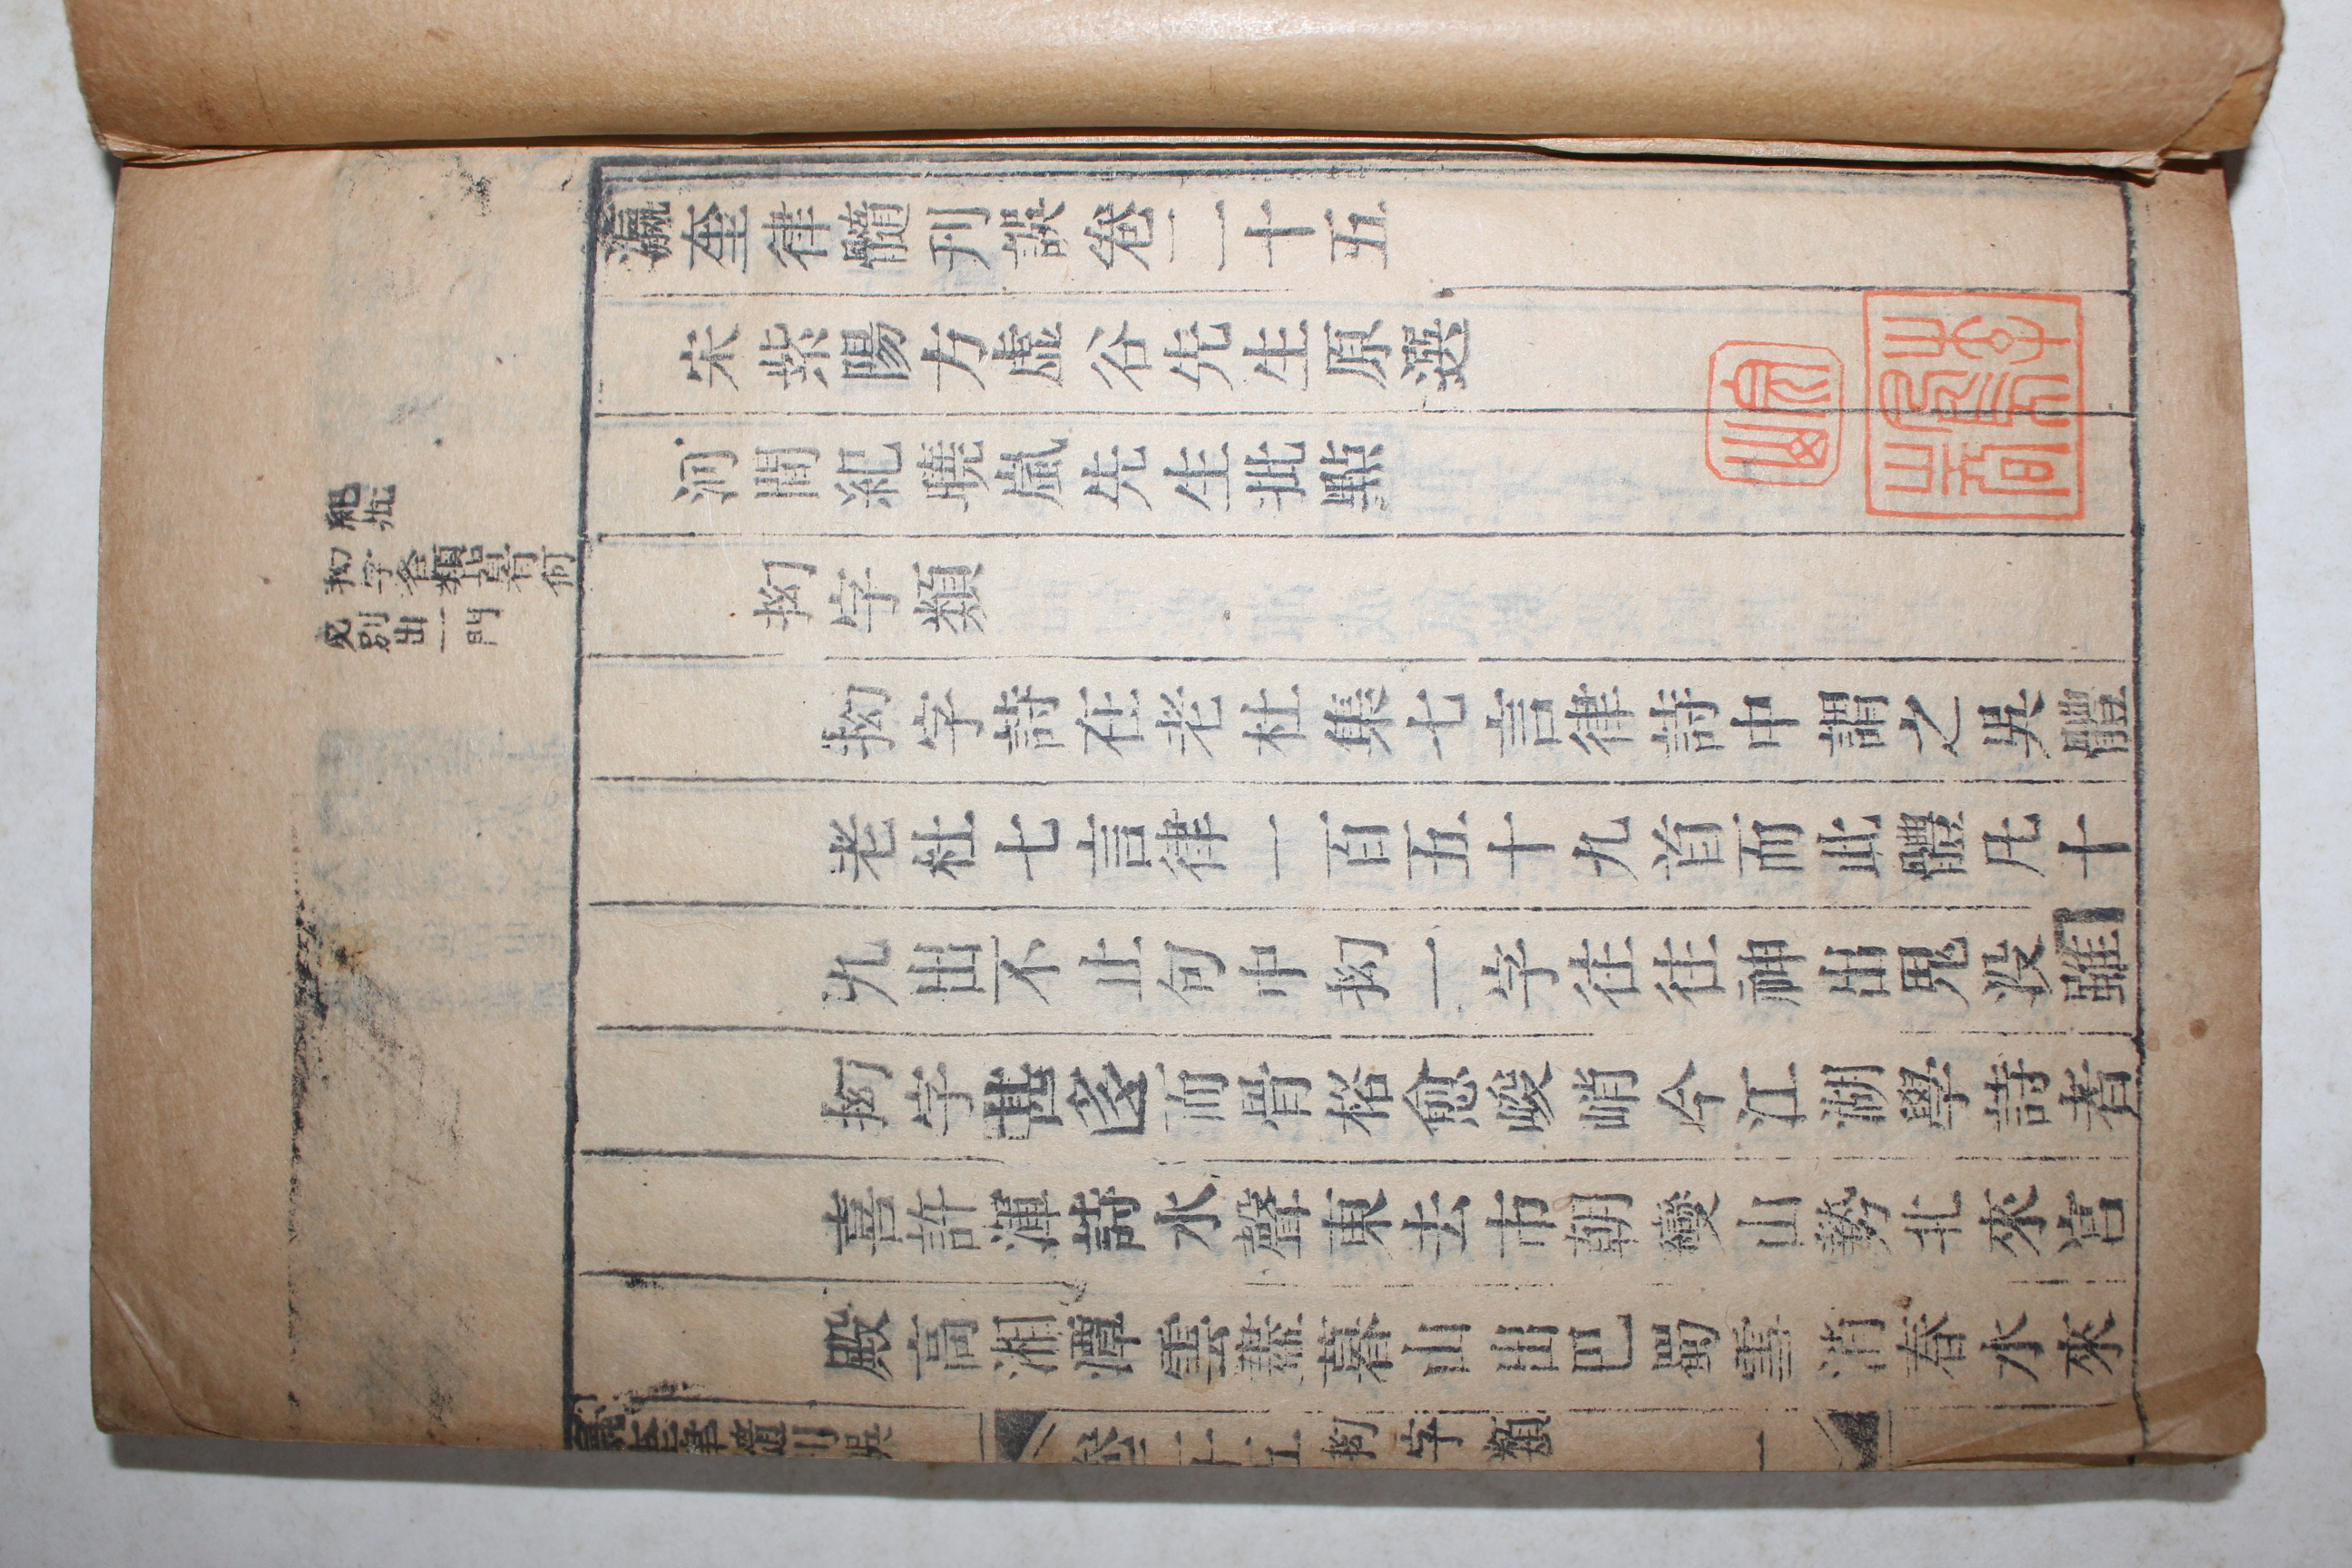 瀛奎律髓刊誤卷二十五
宋紫陽方虛谷先生原選
河間紀曉嵐先生批點
拗字類
拗字詩在老杜集七言律詩中謂之吳體
老杜七言律一百五十九首而此體凡十
九出不止句中拗一字往往神出鬼沒雖
拗字甚多而骨格愈峻峭今江湖學詩者
喜許渾詩水聲東去市朝變山勢北來宮
殿高湘潭雲盡暮山出巴蜀雪消春水來
紀批
拗字各類皆有何
必別出一門
瀛奎律髓刊誤 卷二十五 拗字類 一